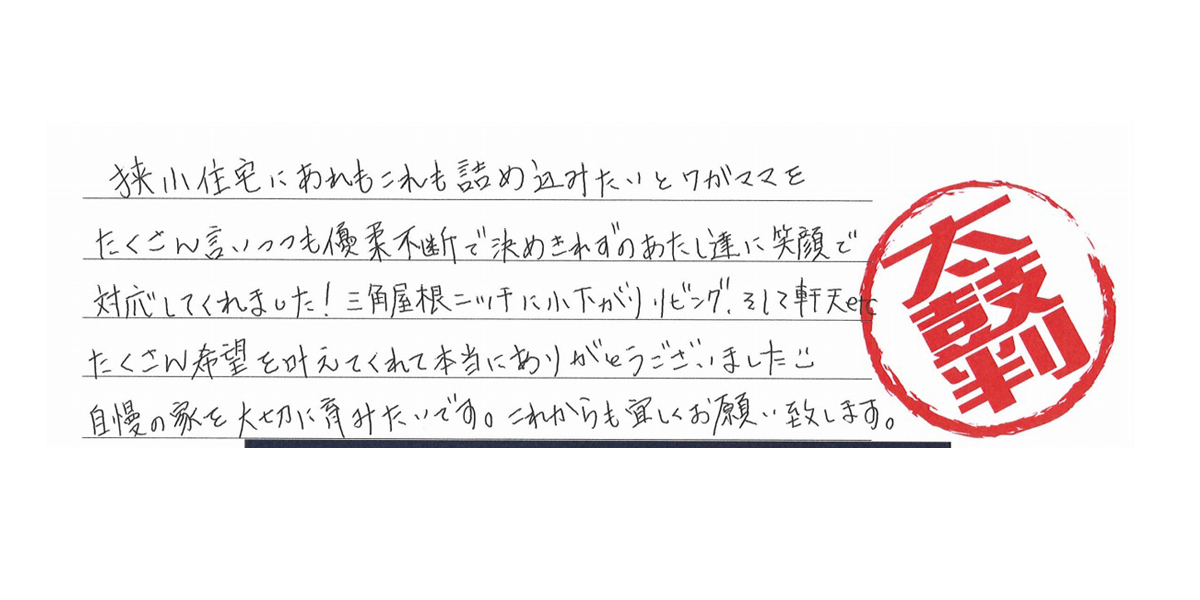 狭小住宅にあれもこれも詰め込みたいとワガママを
たくさん言いつつも優柔不断で決めきれずのあたし達に笑顔で
対応してくれました！三角屋根ニッチに小下がりリビング、そして軒天etc
たくさん希望を叶えてくれて本当にありがとうございました
自慢の家を大切に育みたいです。これからも宜しくお願い致します。
太鼓判